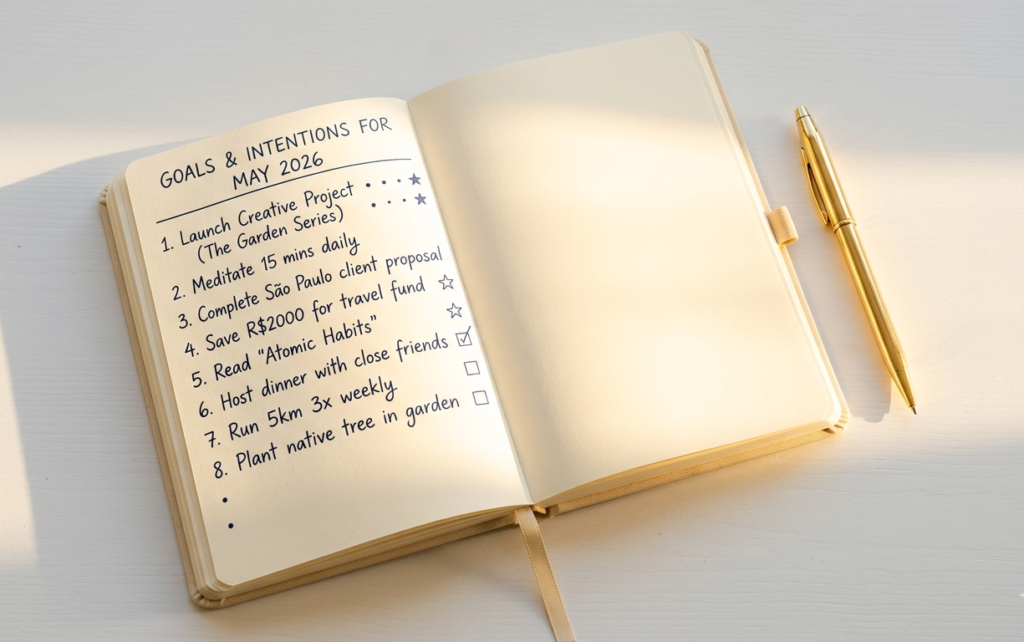 GOALS & INTENTIONS FOR
MAY 2026
1. Launch Creative Project
(The Garden Series)
2. Meditate 15 mins daily
3. Complete São Paulo client proposal
4. Save R$2000 for travel fund
5. Read "Atomic Habits"
6. Host dinner with close friends
7. Run 5km 3x weekly
8. Plant native tree in garden